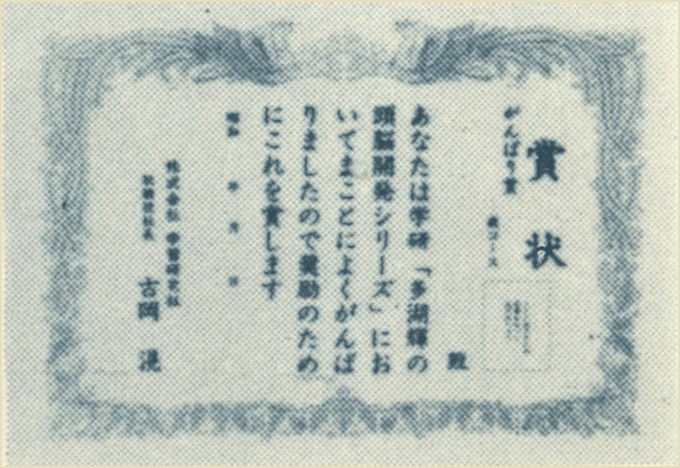 賞状
がんばり賞
コース
殿
あなたは学研「多湖輝の
頭脳開発シリーズ」にお
いてまことによくがんば
りましたので奨励のため
にこれを賞します
昭和 年 月 日
株式会社 学習研究社
取締役社長 古岡 滉